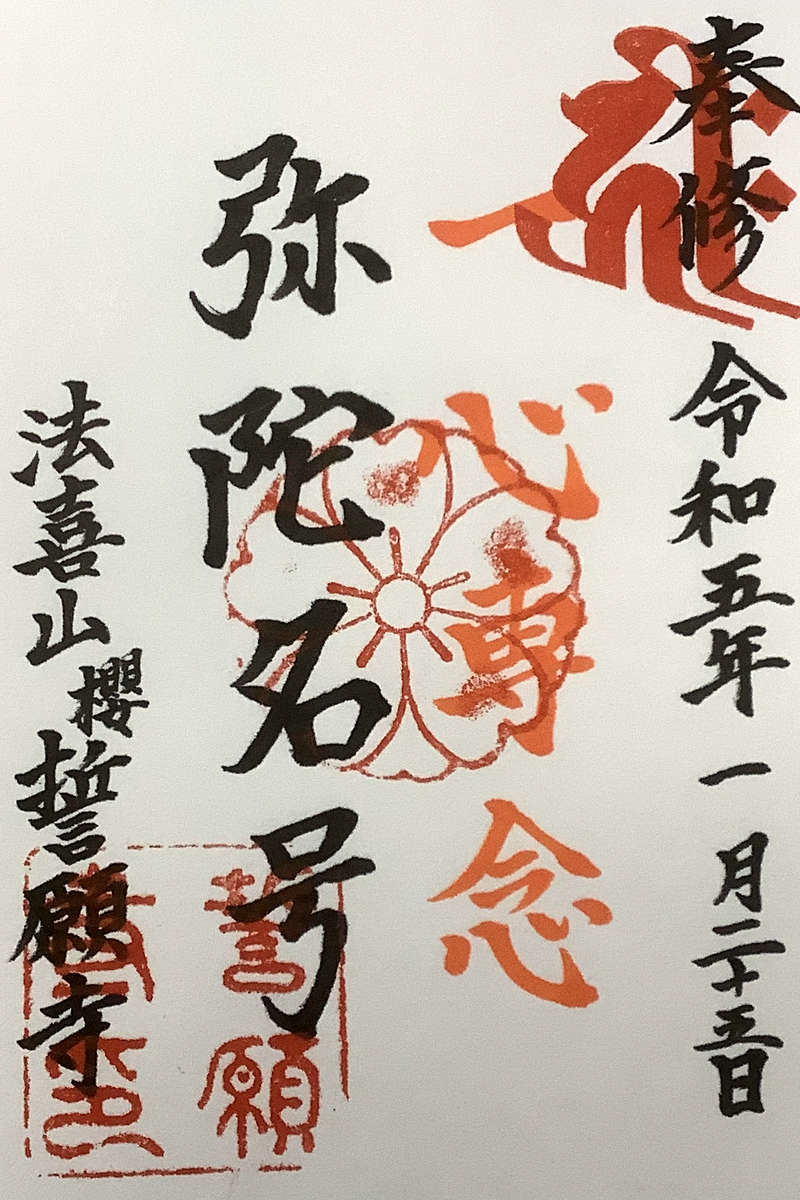 奉修 令和五年一月二十五日
一心專念
弥陀名号
法喜山 櫻 誓願寺
誓願
寺印